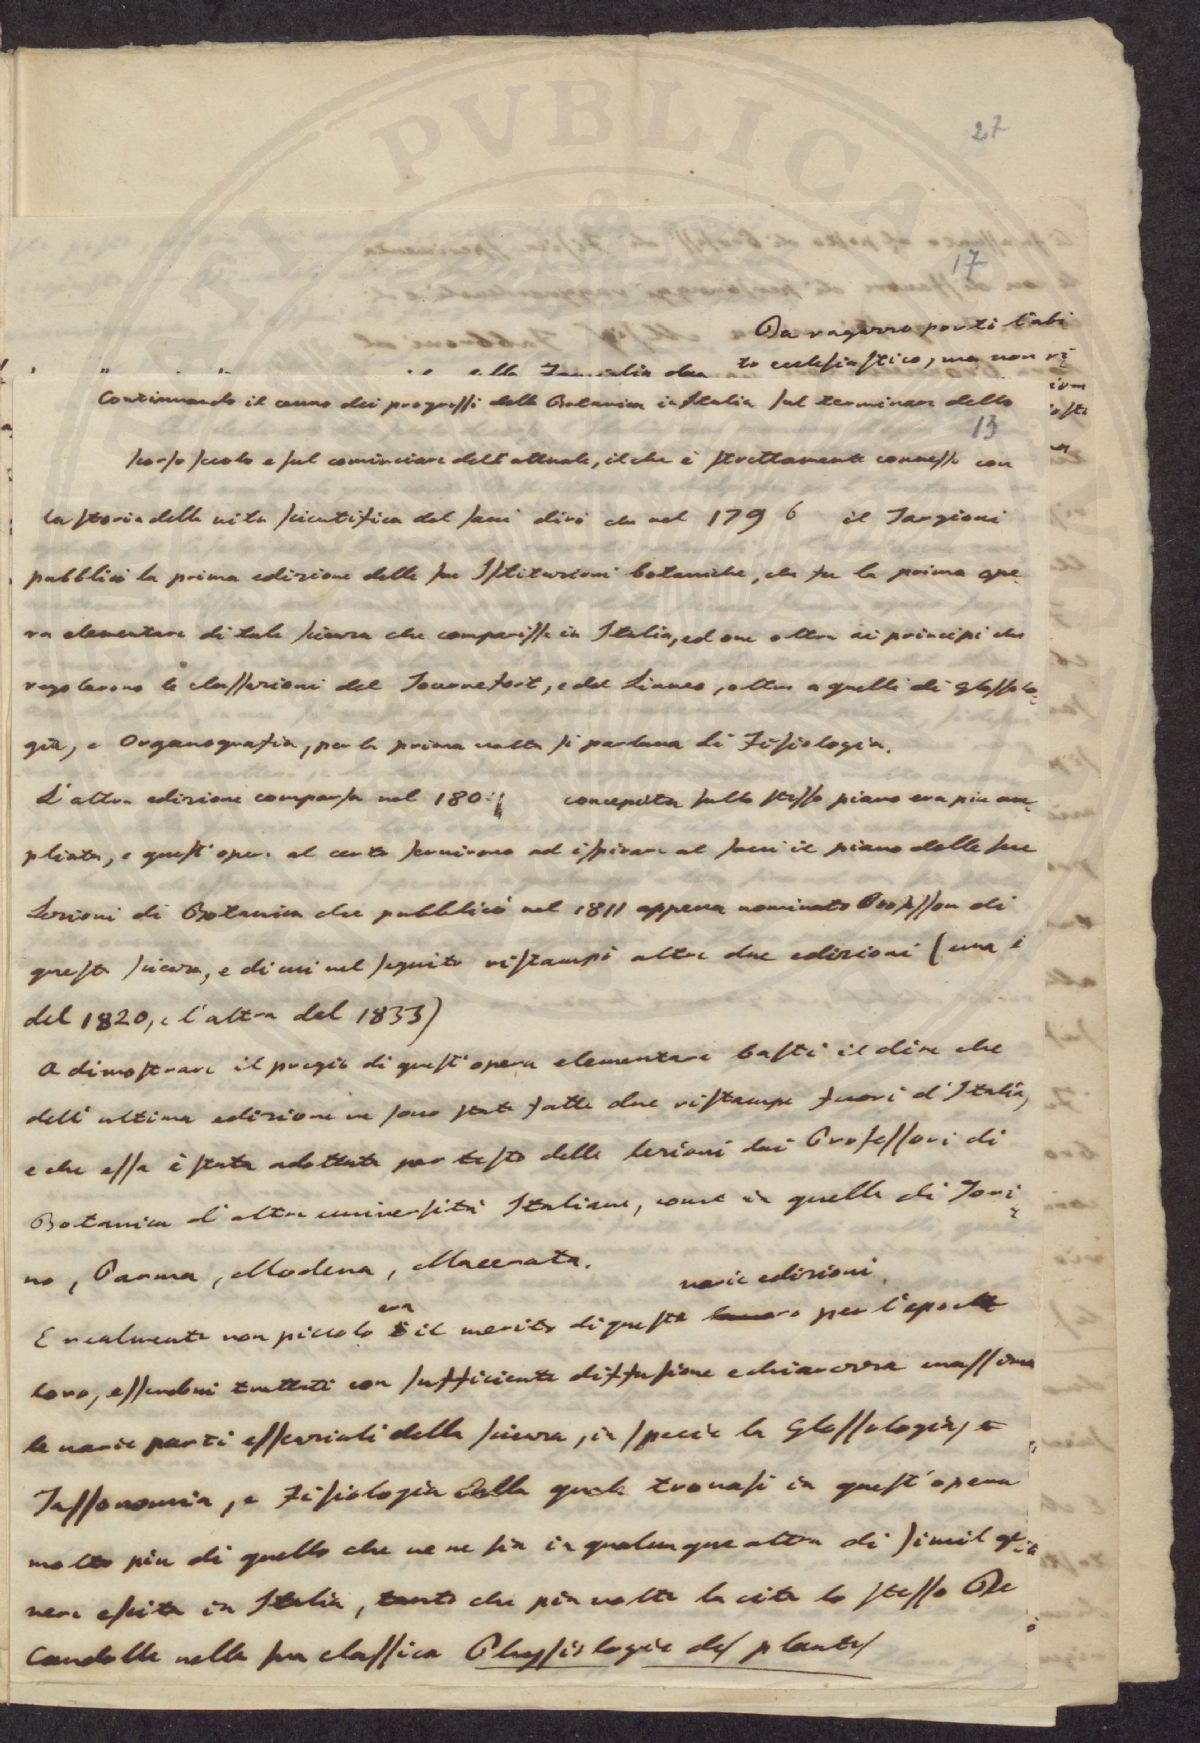 PVBLICA
27
17
Da ragazzo portò l'abi
to ecclesiastico, ma non vi
della Famiglia due
Continuando il cenno dei progressi della Botanica in Italia sul terminare dello
13
scorso secolo e sul cominciare dell'attuale, il che è strettamente connesso con
la storia della vita scientifica del Savi dirò che nel 1796 il Targioni
pubblicò la prima edizione delle sue Istituzioni botaniche, che fu la prima ope
ra elementare di tale scienza che comparisse in Italia, ed ove oltre ai principi che
regolarono le classazioni del Tournefort, e del Linneo, oltre a quelli di Glossolo
gia, e Organografia, per la prima volta si parlava di Fisiologia.
L'altra edizione comparsa nel 180 concepita sullo stesso piano era più am
pliata, e quest'opera al certo servirono ad ispirare al Savi il piano delle sue
Lezioni di Botanica che pubblicò nel 1811 appena nominato Professore di
questa scienza, e di cui nel seguito ristampò altre due edizioni (una è
del 1820, e l'altra del 1833)
A dimostrare il pregio di quest'opera elementare basti il dire che
dell'ultima edizione ne sono state fatte due ristampe fuori d'Italia,
e che essa è stata adottata per testo delle lezioni dai Professori di
Botanica d'altre università Italiane, come in quelle di Tori
no, Parma, Modena, Macerata.
varie edizioni
era
E realmente non piccolo il merito di queste per l'epoche
loro, essendovi trattati con sufficiente diffusione e chiarezza massima
le varie parti essenziali della scienza, in specie la Glossologia, e
Tassonomia, e Fisiologia della quale trovasi in quest'opera
molto più di quello che ve ne sia in qualunque altra di simil ge
nere escita in Italia, tanto che più volte la cita lo stesso De
Candolle nella sua classica Physiologie des plantes